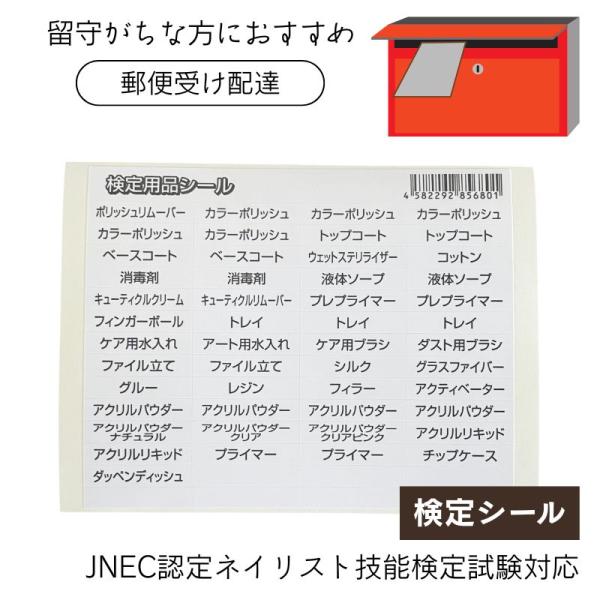 留守がちな方におすすめ
郵便受け配達
検定用品シール
4 582292 856801
ポリッシュリムーバー カラーポリッシュ カラーポリッシュ カラーポリッシュ
カラーポリッシュ カラーポリッシュ トップコート トップコート
ベースコート ベースコート ウェットステリライザー コットン
消毒剤 消毒剤 液体ソープ 液体ソープ
キューティクルクリーム キューティクルリムーバー プレプライマー プレプライマー
フィンガーボール トレイ トレイ トレイ
ケア用水入れ アート用水入れ ケア用ブラシ ダスト用ブラシ
ファイル立て ファイル立て シルク グラスファイバー
グルー レジン フィラー アクティベーター
アクリルパウダー アクリルパウダー アクリルパウダー アクリルパウダー
アクリルパウダー ナチュラル アクリルパウダー クリア アクリルパウダー クリアピンク アクリルリキッド
アクリルリキッド プライマー プライマー チップケース
ダッペンディッシュ
検定シール
JNEC認定ネイリスト技能検定試験対応